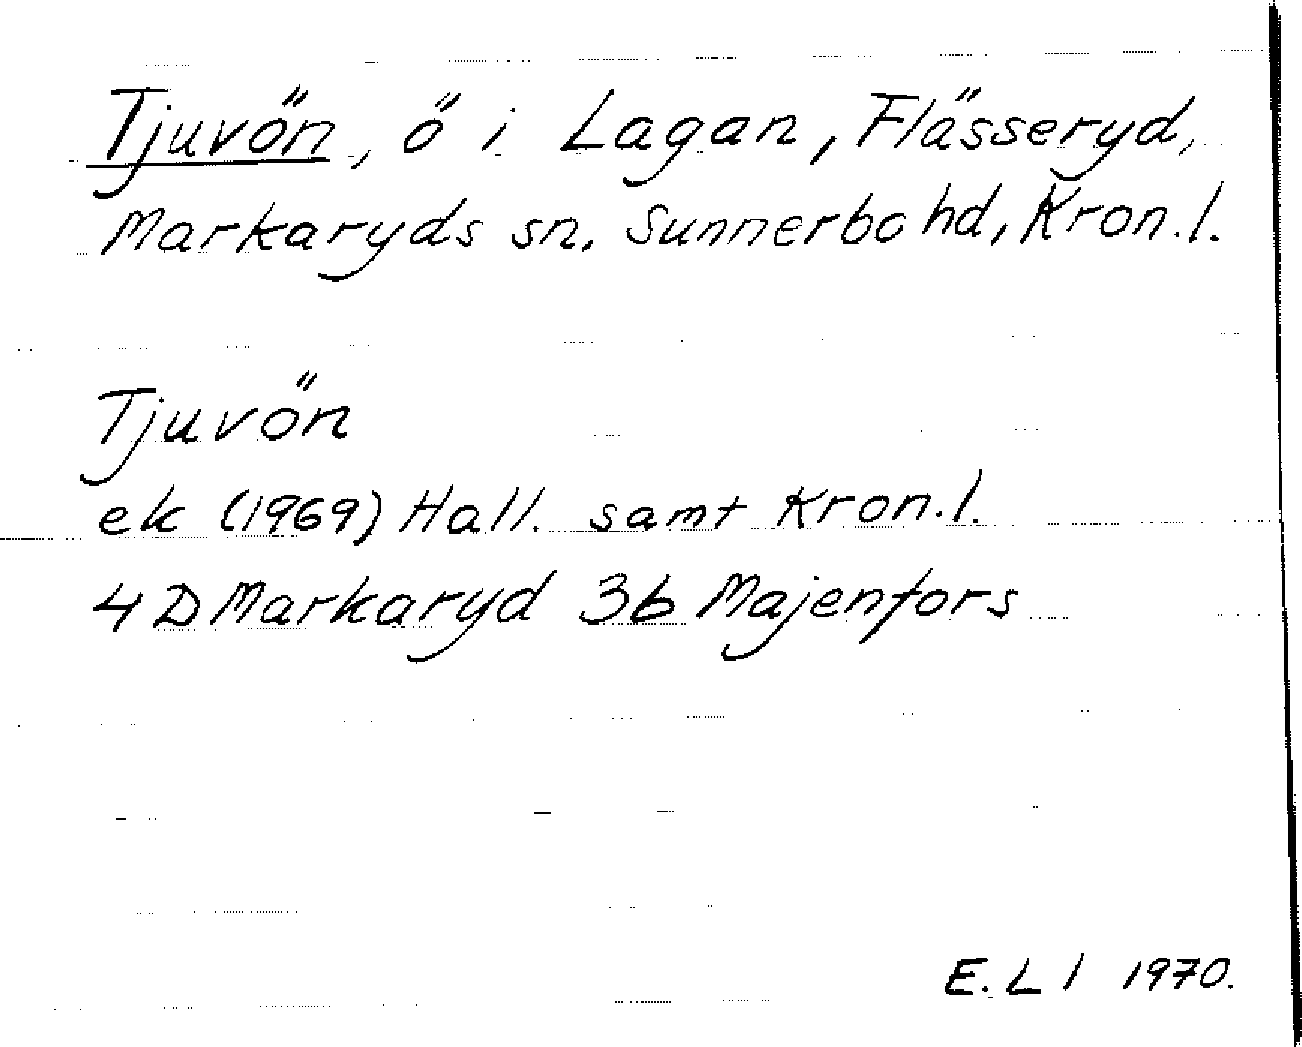 Tjuvön, ö i Lagan, Flässeryd,
Markaryds sn. Sunnerbo hd, Kron.l.
Tjuvön
ek (1969) Hall. samt Kron.l.
4 D Markaryd 3b Majenfors
E. L l 1970.